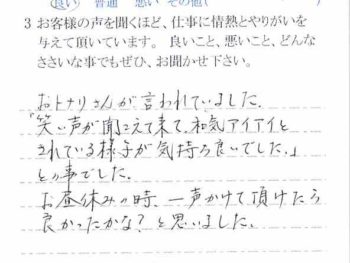 良い 普通 悪い その他(
3 お客様の声を聞くほど、仕事に情熱とやりがいを
与えて頂いています。 良いこと、悪いこと、どんな
ささいな事でもぜひ、お聞かせ下さい。
おトナリさんが言われていました。
『笑い声が聞こえて来て、和気アイアイと
されている様子が気持ち良いでした。』
との事でした。
お昼休みの時、一声かけて頂けたら
良かったかな?と思いました。